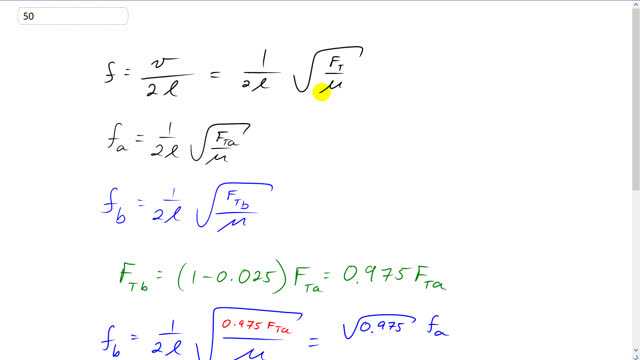 50
f = v/2l = 1/2l √(F_T/μ)
f_a = 1/2l √(F_Ta/μ)
f_b = 1/2l √(F_Tb/μ)
F_Tb = (1-0.025) F_Ta = 0.975 F_Ta
f_b = 1/2l √(0.975 F_Ta/μ) = √0.975 f_a